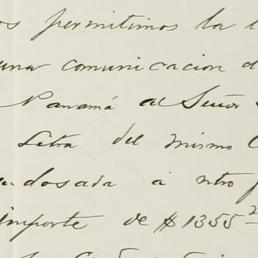 os permitimos la l
una comunicacion d
Panamá al Señor
Letra del mismo C
dosada á ntro f
importe de $1355 2